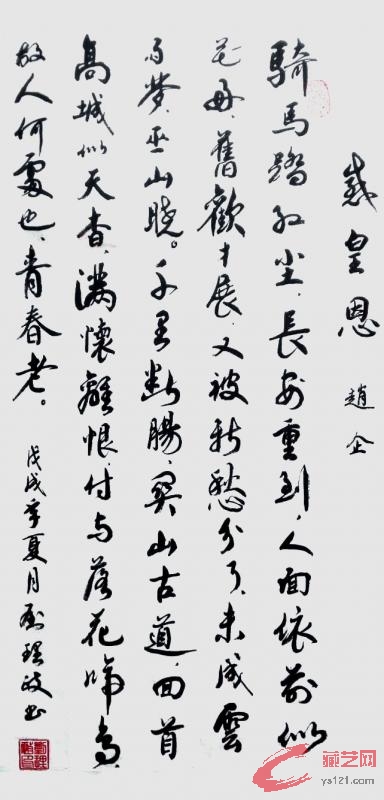 感皇恩 趙企
騎馬踏红尘、長安重到、人面依前似
花好、舊歡才展、又被新愁分了、未成雲
雨夢、巫山晓。千里断腸、関山古道、回首
高城似天杳、满懷離恨、付与落花啼鳥、
故人何處也、青春老。
戊戌季夏月 理 书
藏艺网
ys121.com